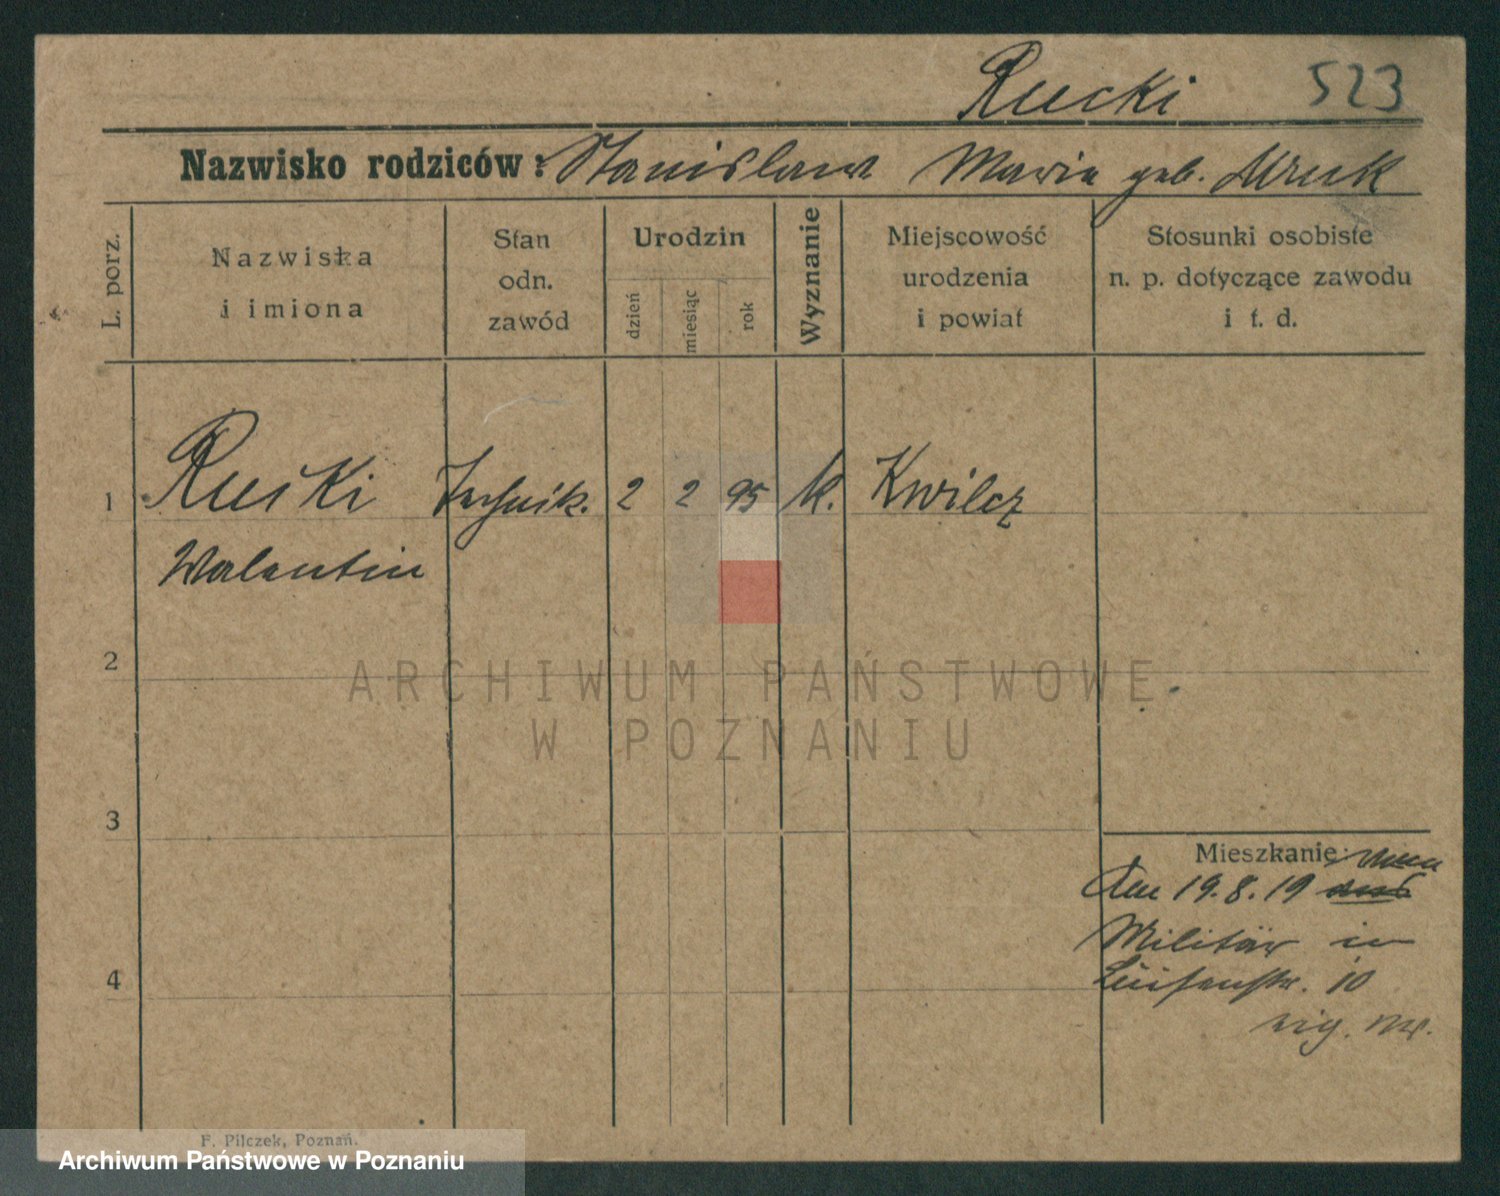 Rucki 523
Nazwisko rodziców: Stanislaw Marie geb. Mruk
L. porz.
Nazwiska
i imiona
Stan
odn.
zawód
Urodzin
dzień
miesiąc
rok
Wyznanie
Miejscowość
urodzenia
i powiat
Stosunki osobiste
n. p. dotyczące zawodu
i t. d.
1 Rucki Technik. 2 2 95 k. Kwilcz
Walentin
2
ARCHIWUM PAŃSTWOWE
W POZNANIU
3
Mieszkanie: vom
den 19.8.19
Militär in
Luisenstr. 10
4
F. Pilczek, Poznań.
Archiwum Państwowe w Poznaniu